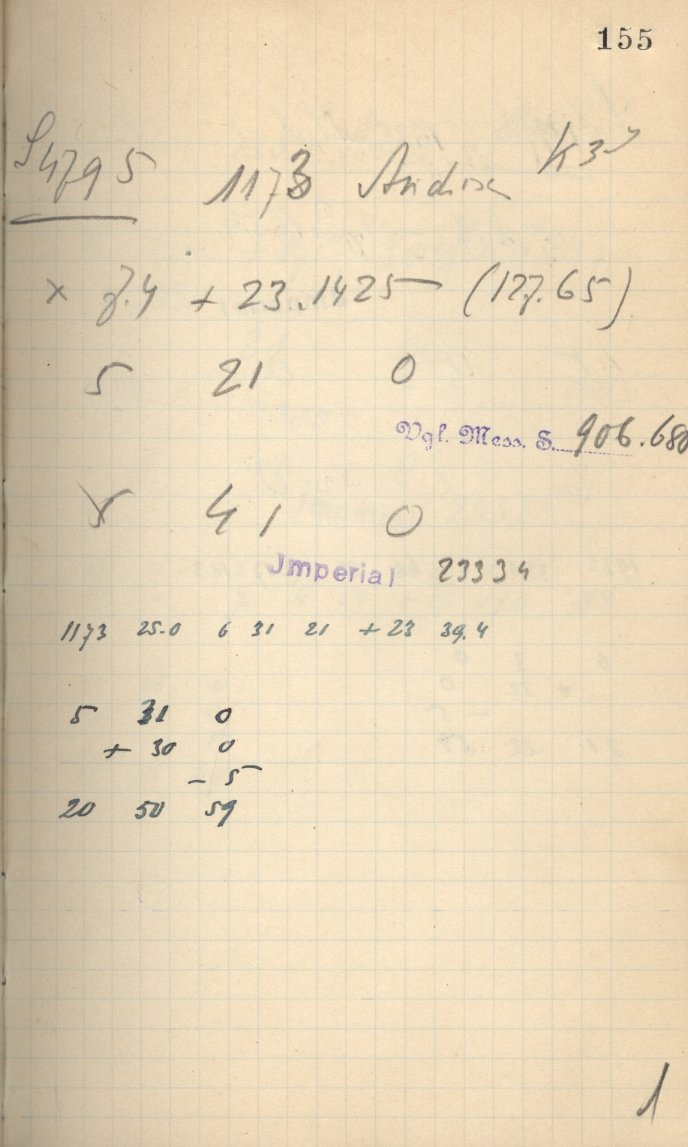 155
S4795 1173 Anchises K3
x 7.4 + 23.1425 (127.65)
5 21 0
Vgl. Mess. S. 906.680
5 41 0
Jmperial 23334
1173 25.0 6 31 21 + 23 39.4
5 31 0
+ 30 0
- 5
20 50 59
1